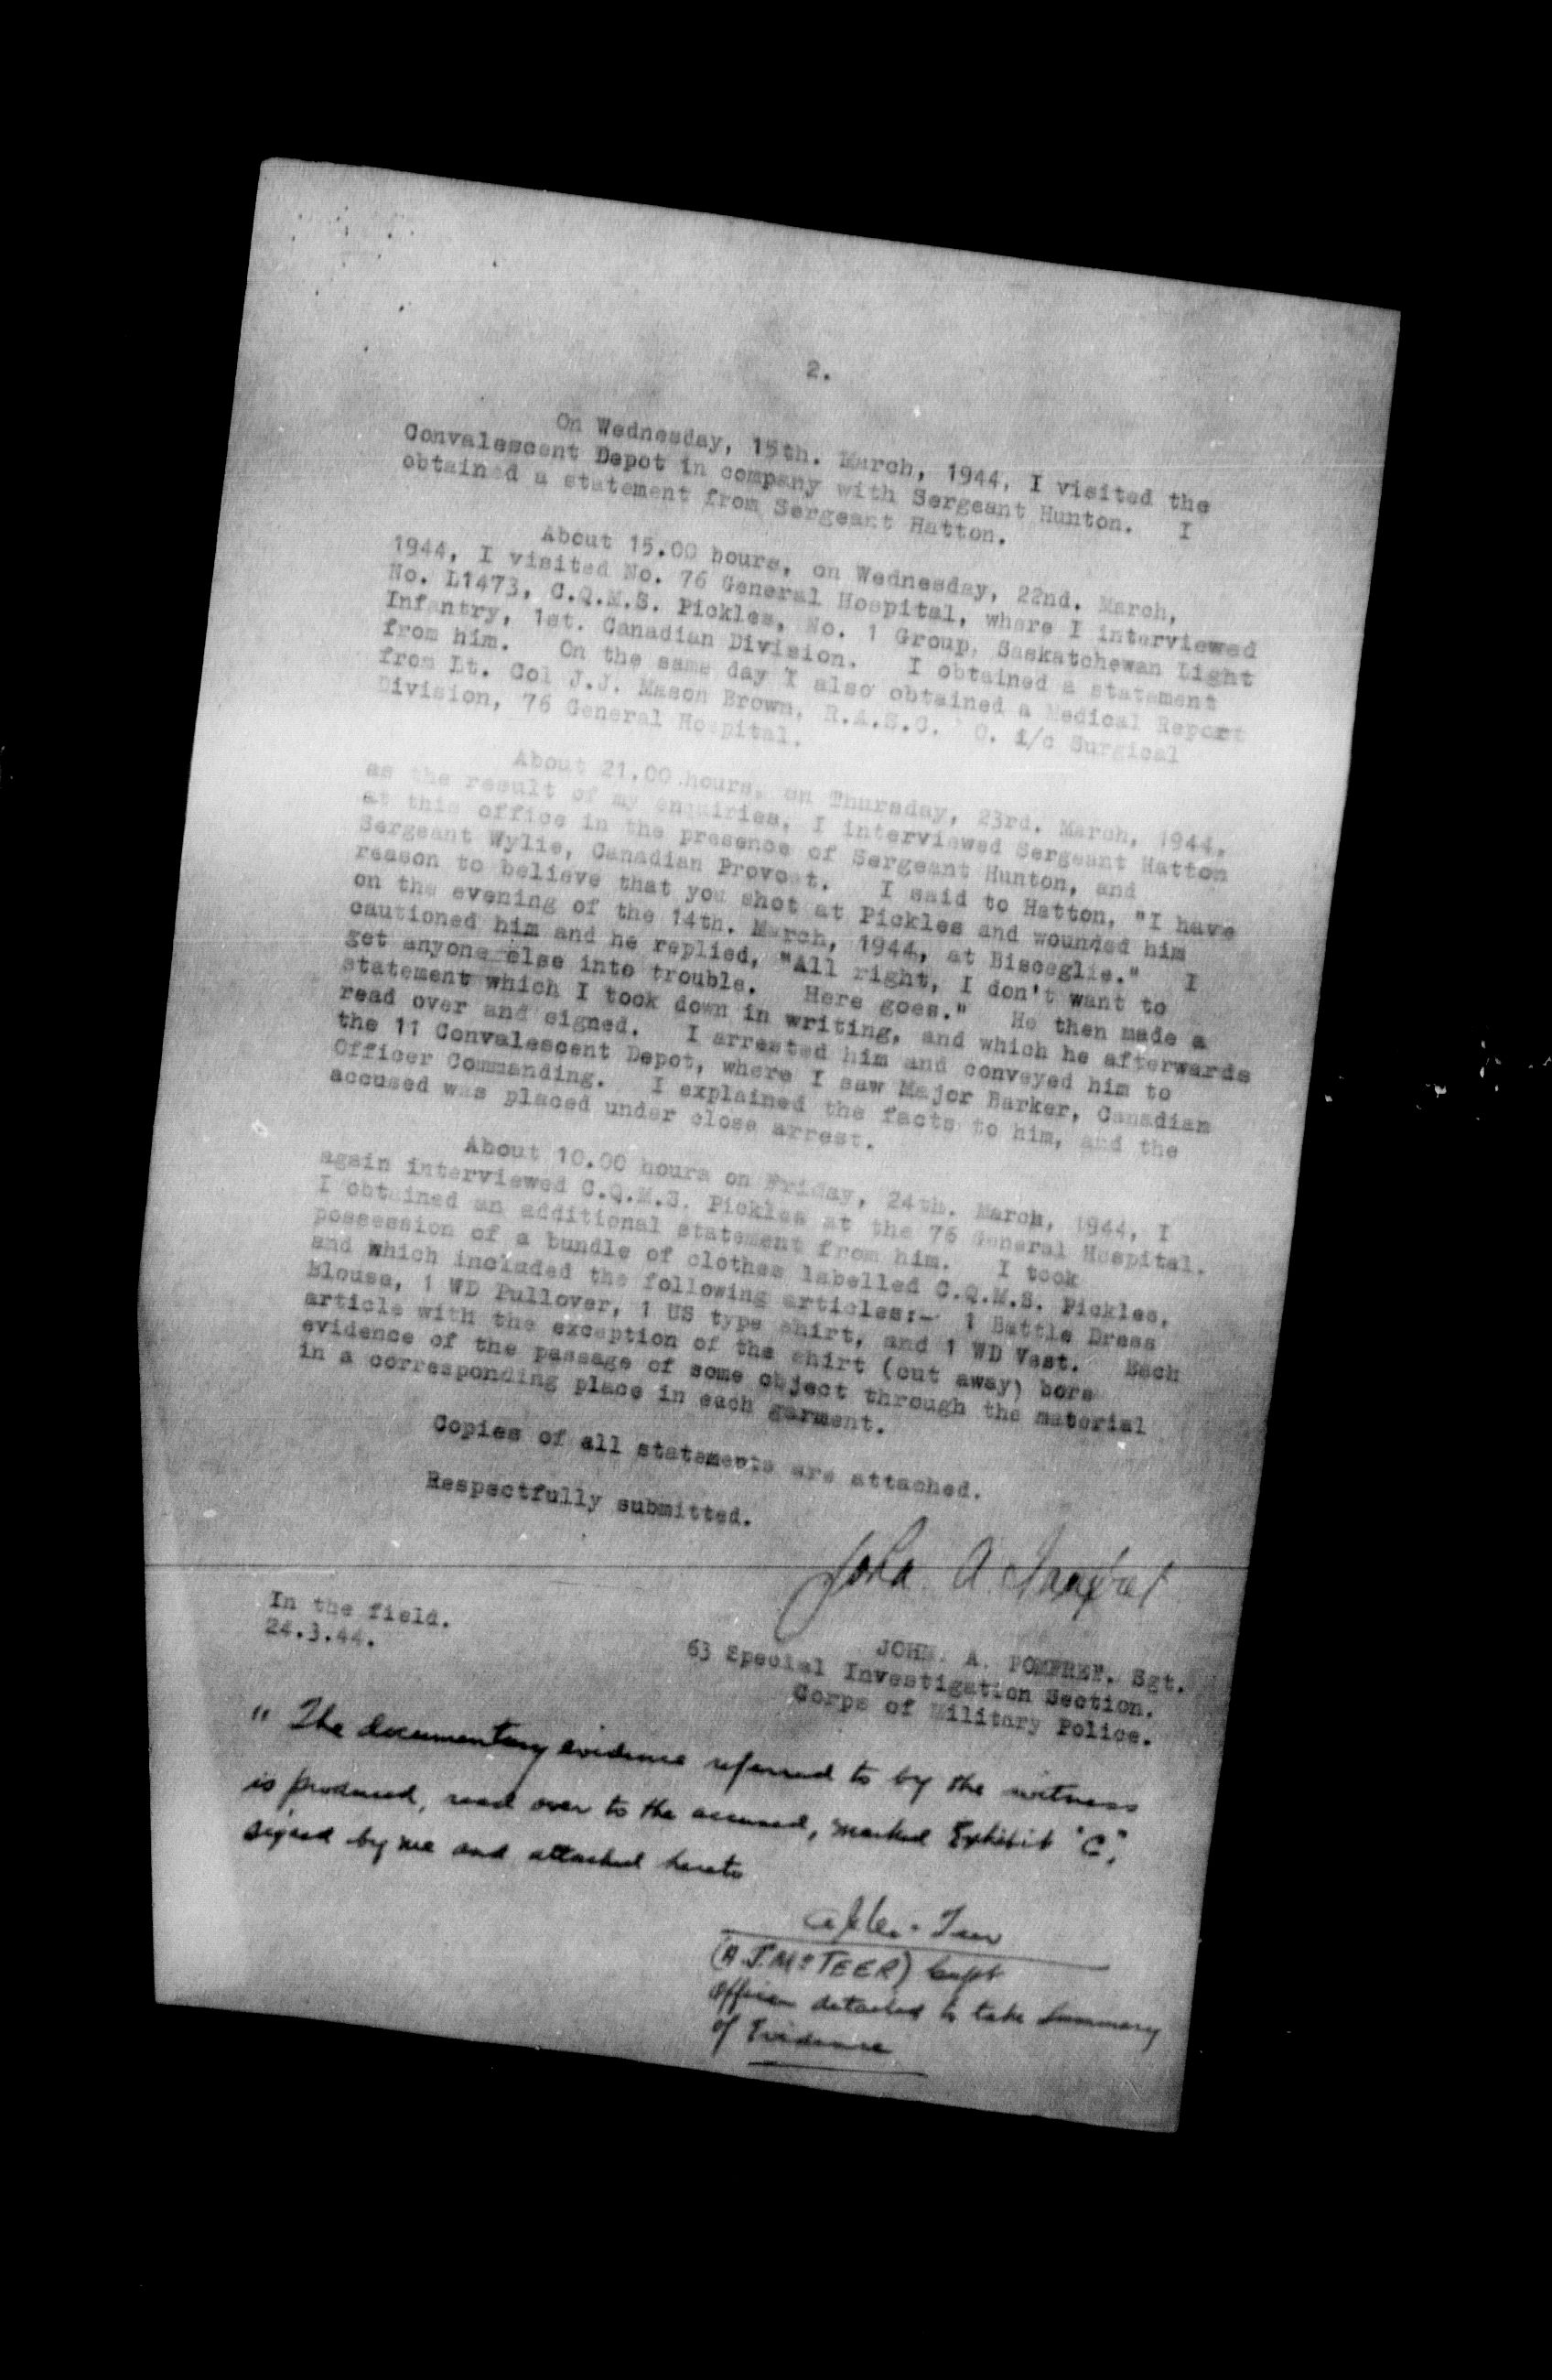 2.
On Wednesday, 15th. March, 1944, I visited the
Convalescent Depot in company with Sergeant Hunton. I
obtained a statement from Sergeant Hatton.
About 15.00 hours, on Wednesday, 22nd. March,
1944, I visited No. 76 General Hospital, where I interviewed
No. L1473, C.Q.M.S. Pickles, No. 1 Group, Saskatchewan Light
Infantry, 1st. Canadian Division. I obtained a statement
from him. On the same day I also obtained a Medical Report
from Lt. Col J.J. Mason Brown, R.A.S.C. O. i/c Surgical
Division, 76 General Hospital.
About 21.00 hours, on Thursday, 23rd. March, 1944,
as the result of my enquiries, I interviewed Sergeant Hatton
at this office in the presence of Sergeant Hunton, and
Sergeant Wylie, Canadian Provost. I said to Hatton, "I have
reason to believe that you shot at Pickles and wounded him
on the evening of the 14th. March, 1944, at Bisceglie." I
cautioned him and he replied, "All right, I don't want to
get anyone else into trouble. Here goes." He then made a
statement which I took down in writing, and which he afterwards
read over and signed. I arrested him and conveyed him to
the 11 Convalescent Depot, where I saw Major Barker, Canadian
Officer Commanding. I explained the facts to him, and the
accused was placed under close arrest.
About 10.00 hours on Friday, 24th. March, 1944, I
again interviewed C.Q.M.S. Pickles at the 76 General Hospital.
I obtained an additional statement from him. I took
possession of a bundle of clothes labelled C.Q.M.S. Pickles,
and which included the following articles:- 1 Battle Dress
Blouse, 1 WD Pullover, 1 US type shirt, and 1 WD Vest. Each
article with the exception of the shirt (cut away) bore
evidence of the passage of some object through the material
in a corresponding place in each garment.
Copies of all statements are attached.
Respectfully submitted.
John A. Pomfret
In the field.
24.3.44.
JOHN. A. POMFRET. Sgt.
63 Special Investigation Section.
Corps of Military Police.
" The documentary evidence referred to by the witness
is produced, read over to the accused, marked Exhibit "C",
signed by me and attached hereto
(A J McTEER) Capt
Officer detailed to take Summary
of Evidence